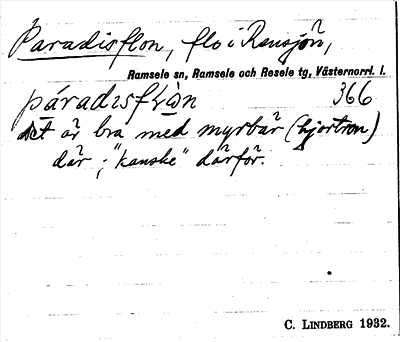 Paradisflon, flo i Rensjön,
Ramsele sn, Ramsele och Resele tg, Västernorrl. l.
páradisflòn 366
det är bra med myrbär (hjortron)
där; "kanske" därför.
C. LINDBERG 1932.